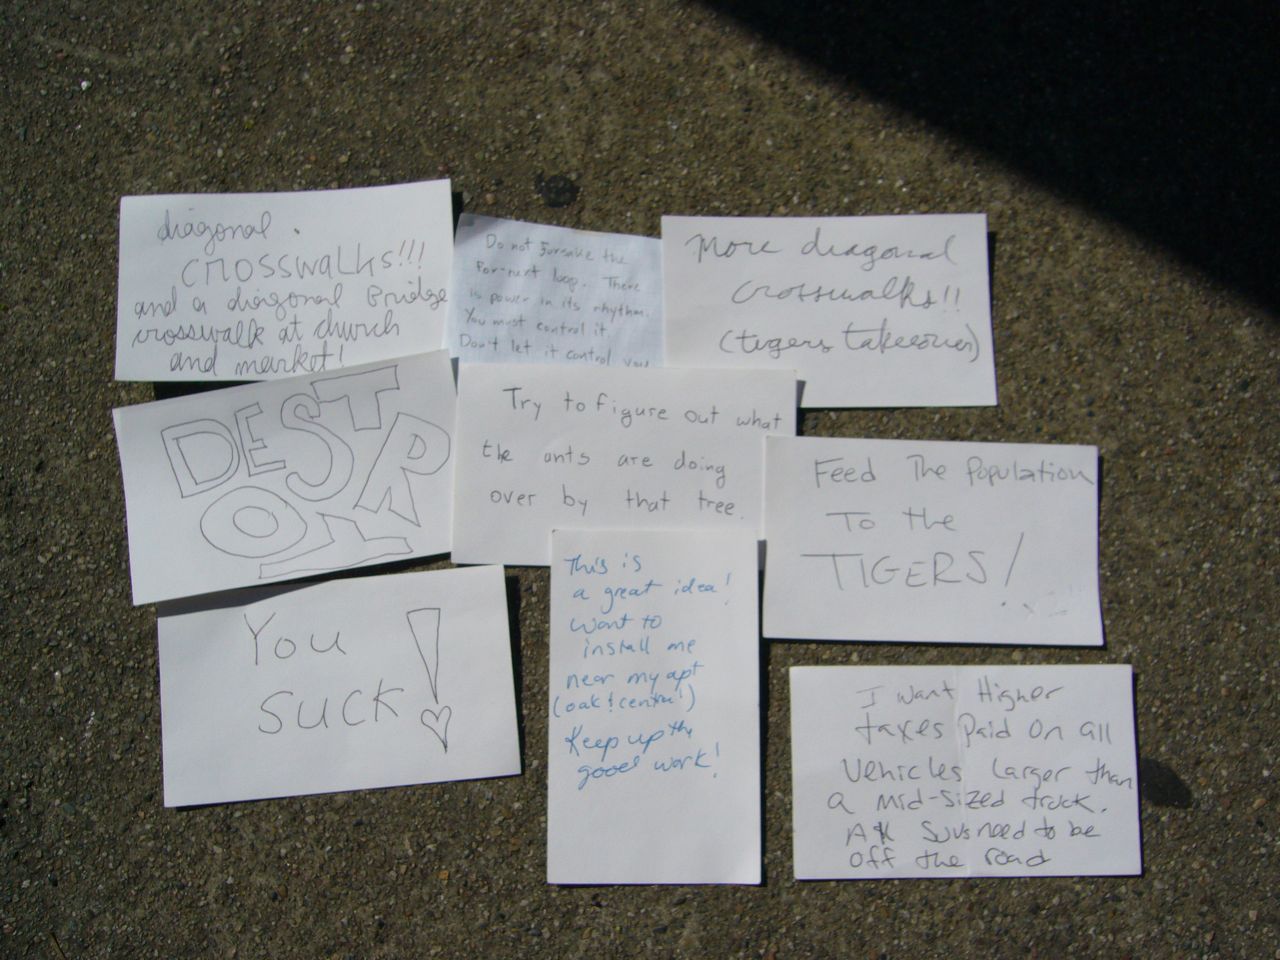 diagonal.
CROSSWALKS!!!
and a diagonal Bridge
crosswalk at church
and market!
Do not forsake the
for-next loop. There
is power in its rhythm.
You must control it.
Don't let it control you
More diagonal
crosswalks!!
(tigers takeover)
DESTR
OY
Try to figure out what
the ants are doing
over by that tree.
Feed The Population
To the
TIGERS!
You
SUCK!
This is
a great idea!
Want to
install me
near my apt
(oak & central)
Keep up the
good work!
I want Higher
taxes Paid On all
Vehicles Larger than
a mid-sized truck.
SUVs need to be
off the road